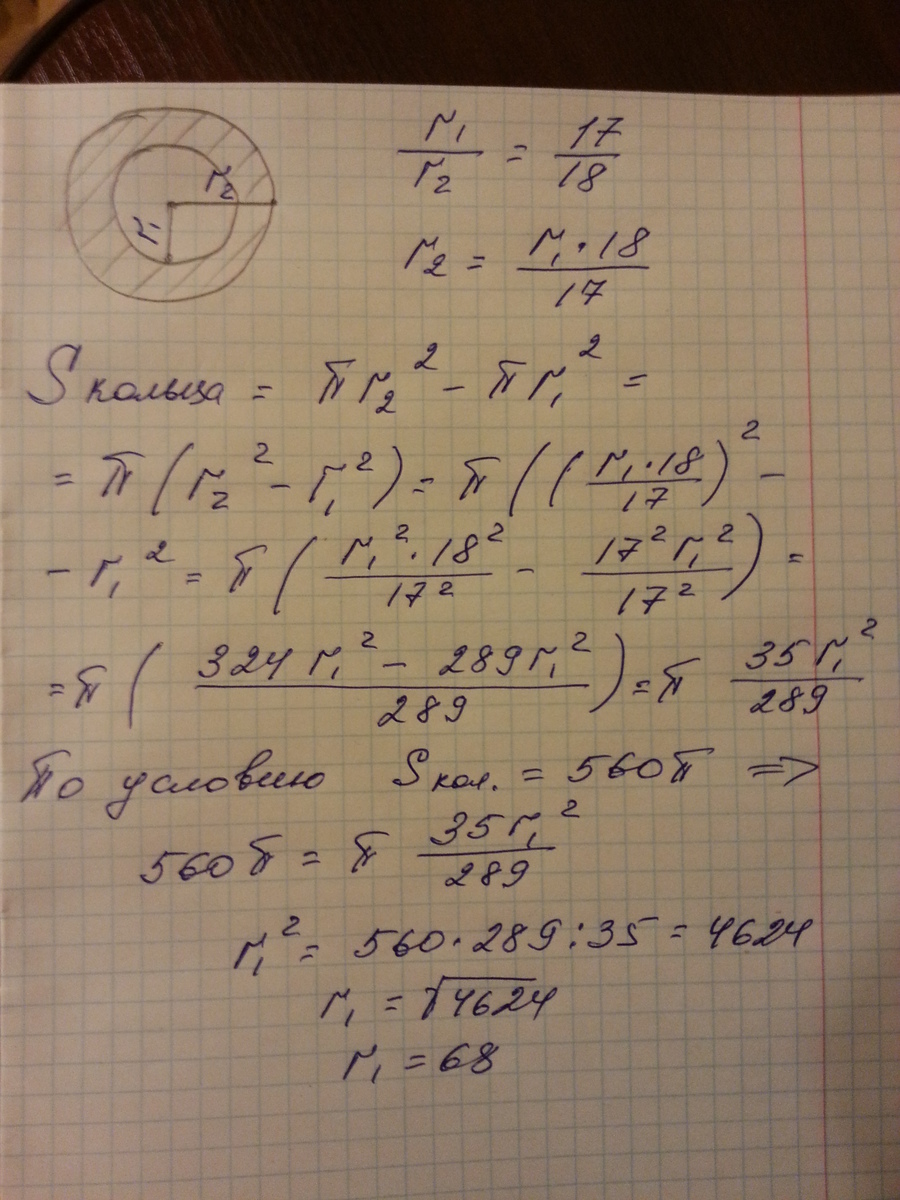 r₂
r₁
r₁/r₂ = 17/18
r₂ = r₁·18/17
S кольца = πr₂² - πr₁² =
= π(r₂² - r₁²) = π((r₁·18/17)² -
- r₁² = π(r₁²·18²/17² - 17²r₁²/17²) =
= π(324r₁² - 289r₁²/289) = π 35r₁²/289
По условию S кол. = 560π ⇒
560π = π 35r₁²/289
r₁² = 560·289:35 = 4624
r₁ = √4624
r₁ = 68